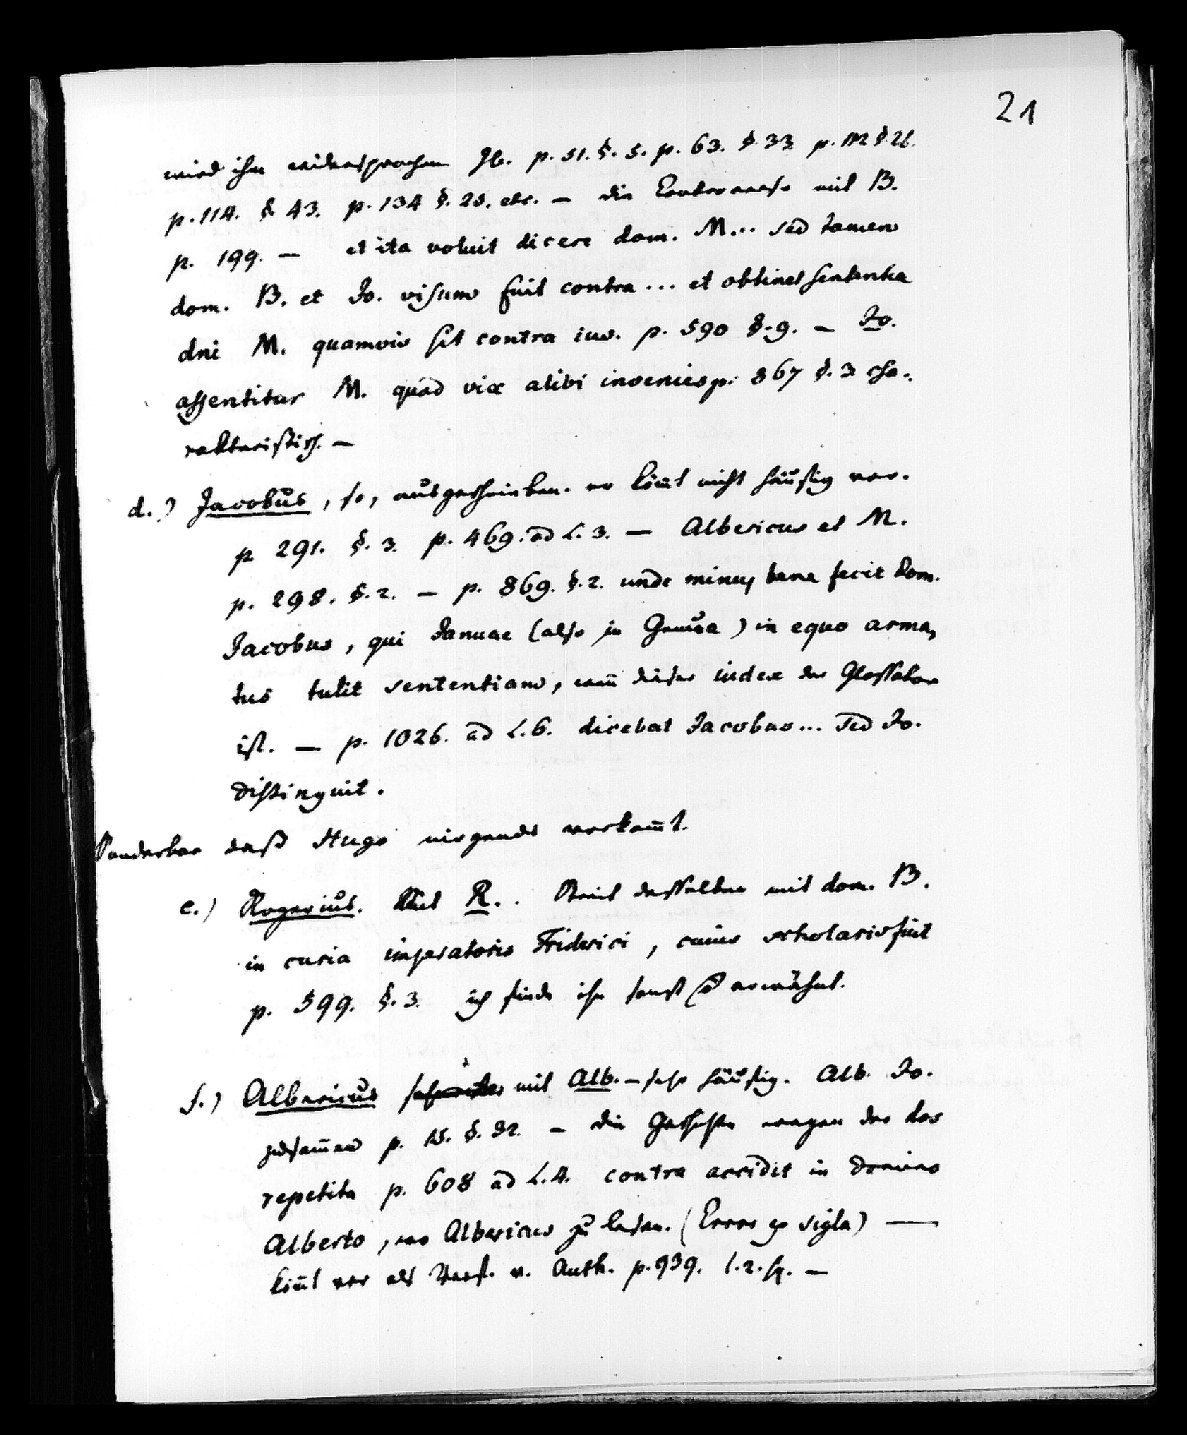 21
wird ihm widersprochen Jb. p. 51. §. 5. p. 63. § 33 p. 112 § 26.
p. 114. § 43. p. 134 §. 25. etc. — die Controverse mit B.
p. 199. — et ita voluit dicere dom. M... sed tamen
dom. B. et Jo. visum fuit contra ... et obtinet sententia
dni M. quamvis sit contra ius. p. 590 §. 9. — Jo.
assentitur M. quod vix alibi invenies p. 867 §. 3 cha-
rakteristisch. —
d.) Jacobus, so, ausgeschrieben. er kom̄t nicht häufig vor.
p 291. §. 3. p. 469. ad L. 3. — Albericus et M.
p. 298. §. 2. — p. 869. §. 2. unde minus bene fecit dom.
Jacobus, qui Januae (also in Genua) in equo arma-
tus tulit sententiam, wen̄ dieser iudex der Glossator
ist. — p. 1026. ad L. 6. dicebat Jacobus ... sed Jo.
distinguit.
Sonderbar daß Hugo nirgends vorkom̄t.
e.) Rogerius. R.. Streit desselben mit dom. B.
in curia imperatoris Friderici, cuius scholaris fuit
p. 599. §. 3. ich finde ihn sonst erwähnt.
f.) Albericus mit Alb. — sehr häufig. Alb. Jo.
zusam̄en p. 15. §. 32. — die Geschichte wegen der dos
repetita p. 608 ad L. 4. contra accidit in domino
Alberto, wo Albericus zu lesen. (Error ex sigla) —
kom̄t vor als Verf. v. Auth. p. 939. l. 2. sq. —